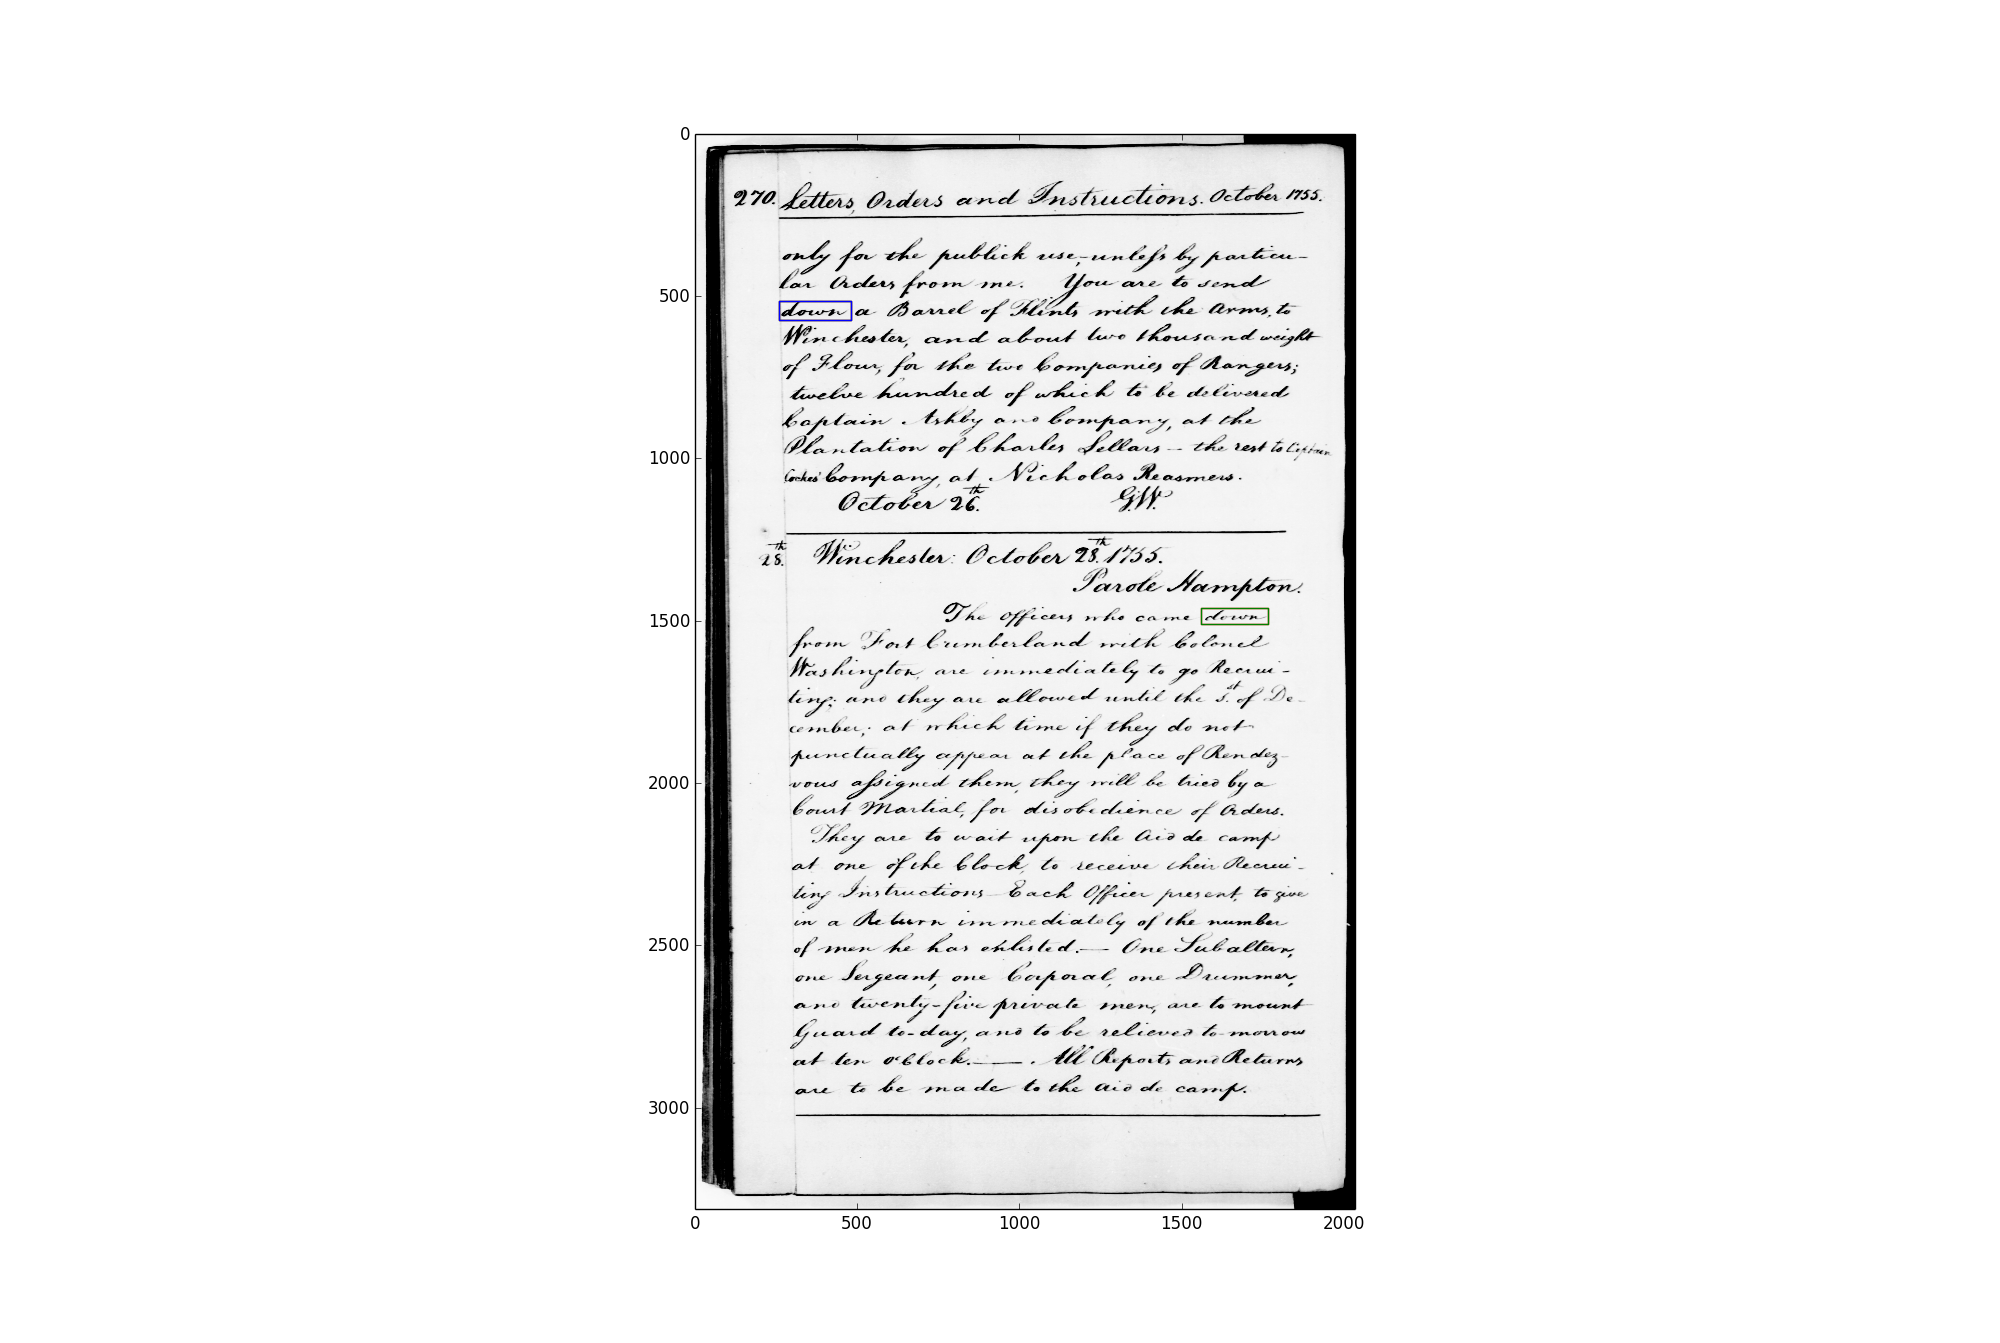 270. Letters, Orders and Instructions. October 1755.
only for the publick use,-unless by particu-
lar Orders from me. You are to send
down a Barrel of Flints with the Arms, to
Winchester, and about two thousand weight
of Flour, for the two Companies of Rangers;
twelve hundred of which to be delivered
Captain Ashby and Company, at the
Plantation of Charles Sellars - the rest to Captain
Cockes' Company, at Nicholas Reasmers.
October 26th. G.W.
28th. Winchester: October 28th. 1755.
Parole Hampton.
The Officers who came down
from Fort Cumberland with Colonel
Washington, are immediately to go Recrui-
ting; and they are allowed until the 1st. of De-
cember; at which time if they do not
punctually appear at the place of Rendez-
vous assigned them, they will be tried by a
Court Martial, for disobedience of Orders.
They are to wait upon the Aid de camp
at one of the Clock, to receive their Recrui-
ting Instructions - Each Officer present, to give
in a Return immediately of the number
of men he has enlisted.- One Subaltern,
one Sergeant, one Corporal, one Drummer,
and twenty-five private men, are to mount
Guard to-day, and to be relieved to-morrow
at ten o'Clock.-. All Reports and Returns
are to be made to the Aid de camp.
0
500
1000
1500
2000
2500
3000
0 500 1000 1500 2000